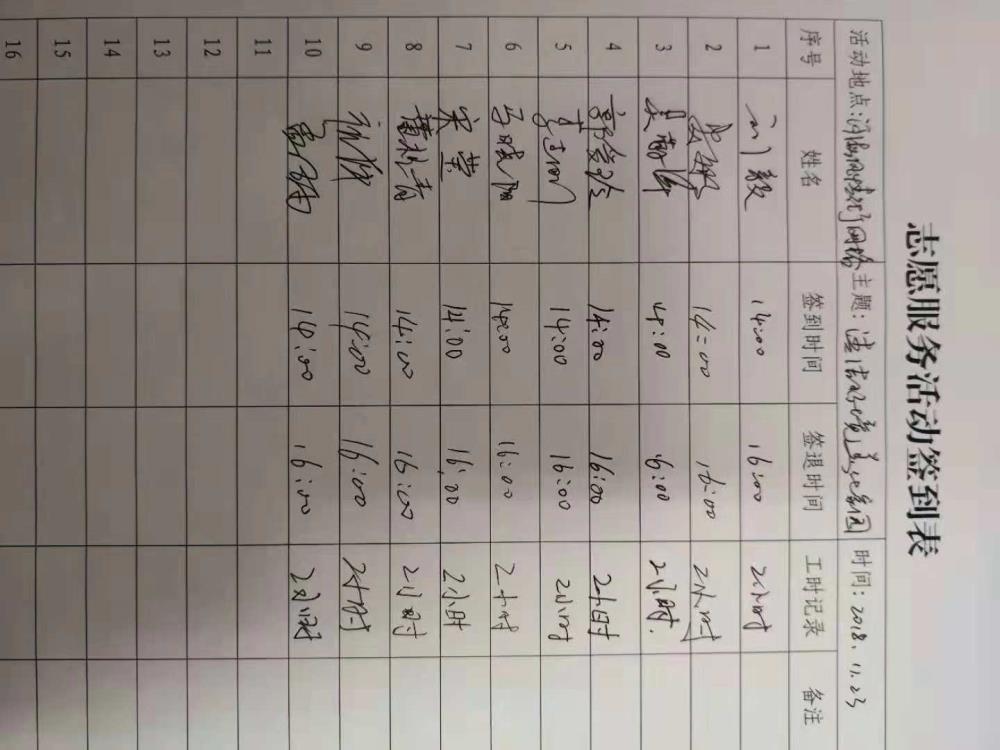 志愿服务活动签到表
活动地点: 主题: 清洁环境 美化家园 时间: 2018.11.23
序号 姓名 签到时间 签退时间 工时记录 备注
1 14:00 16:00 2小时
2 14:00 16:00 2小时
3 14:00 16:00 2小时.
4 14:00 16:00 2小时
5 14:00 16:00 2小时
6 马晓阳 14:00 16:00 2小时
7 宋莹 14:00 16:00 2小时
8 14:00 16:00 2小时
9 14:00 16:00 2小时
10 14:00 16:00 2小时
11
12
13
14
15
16